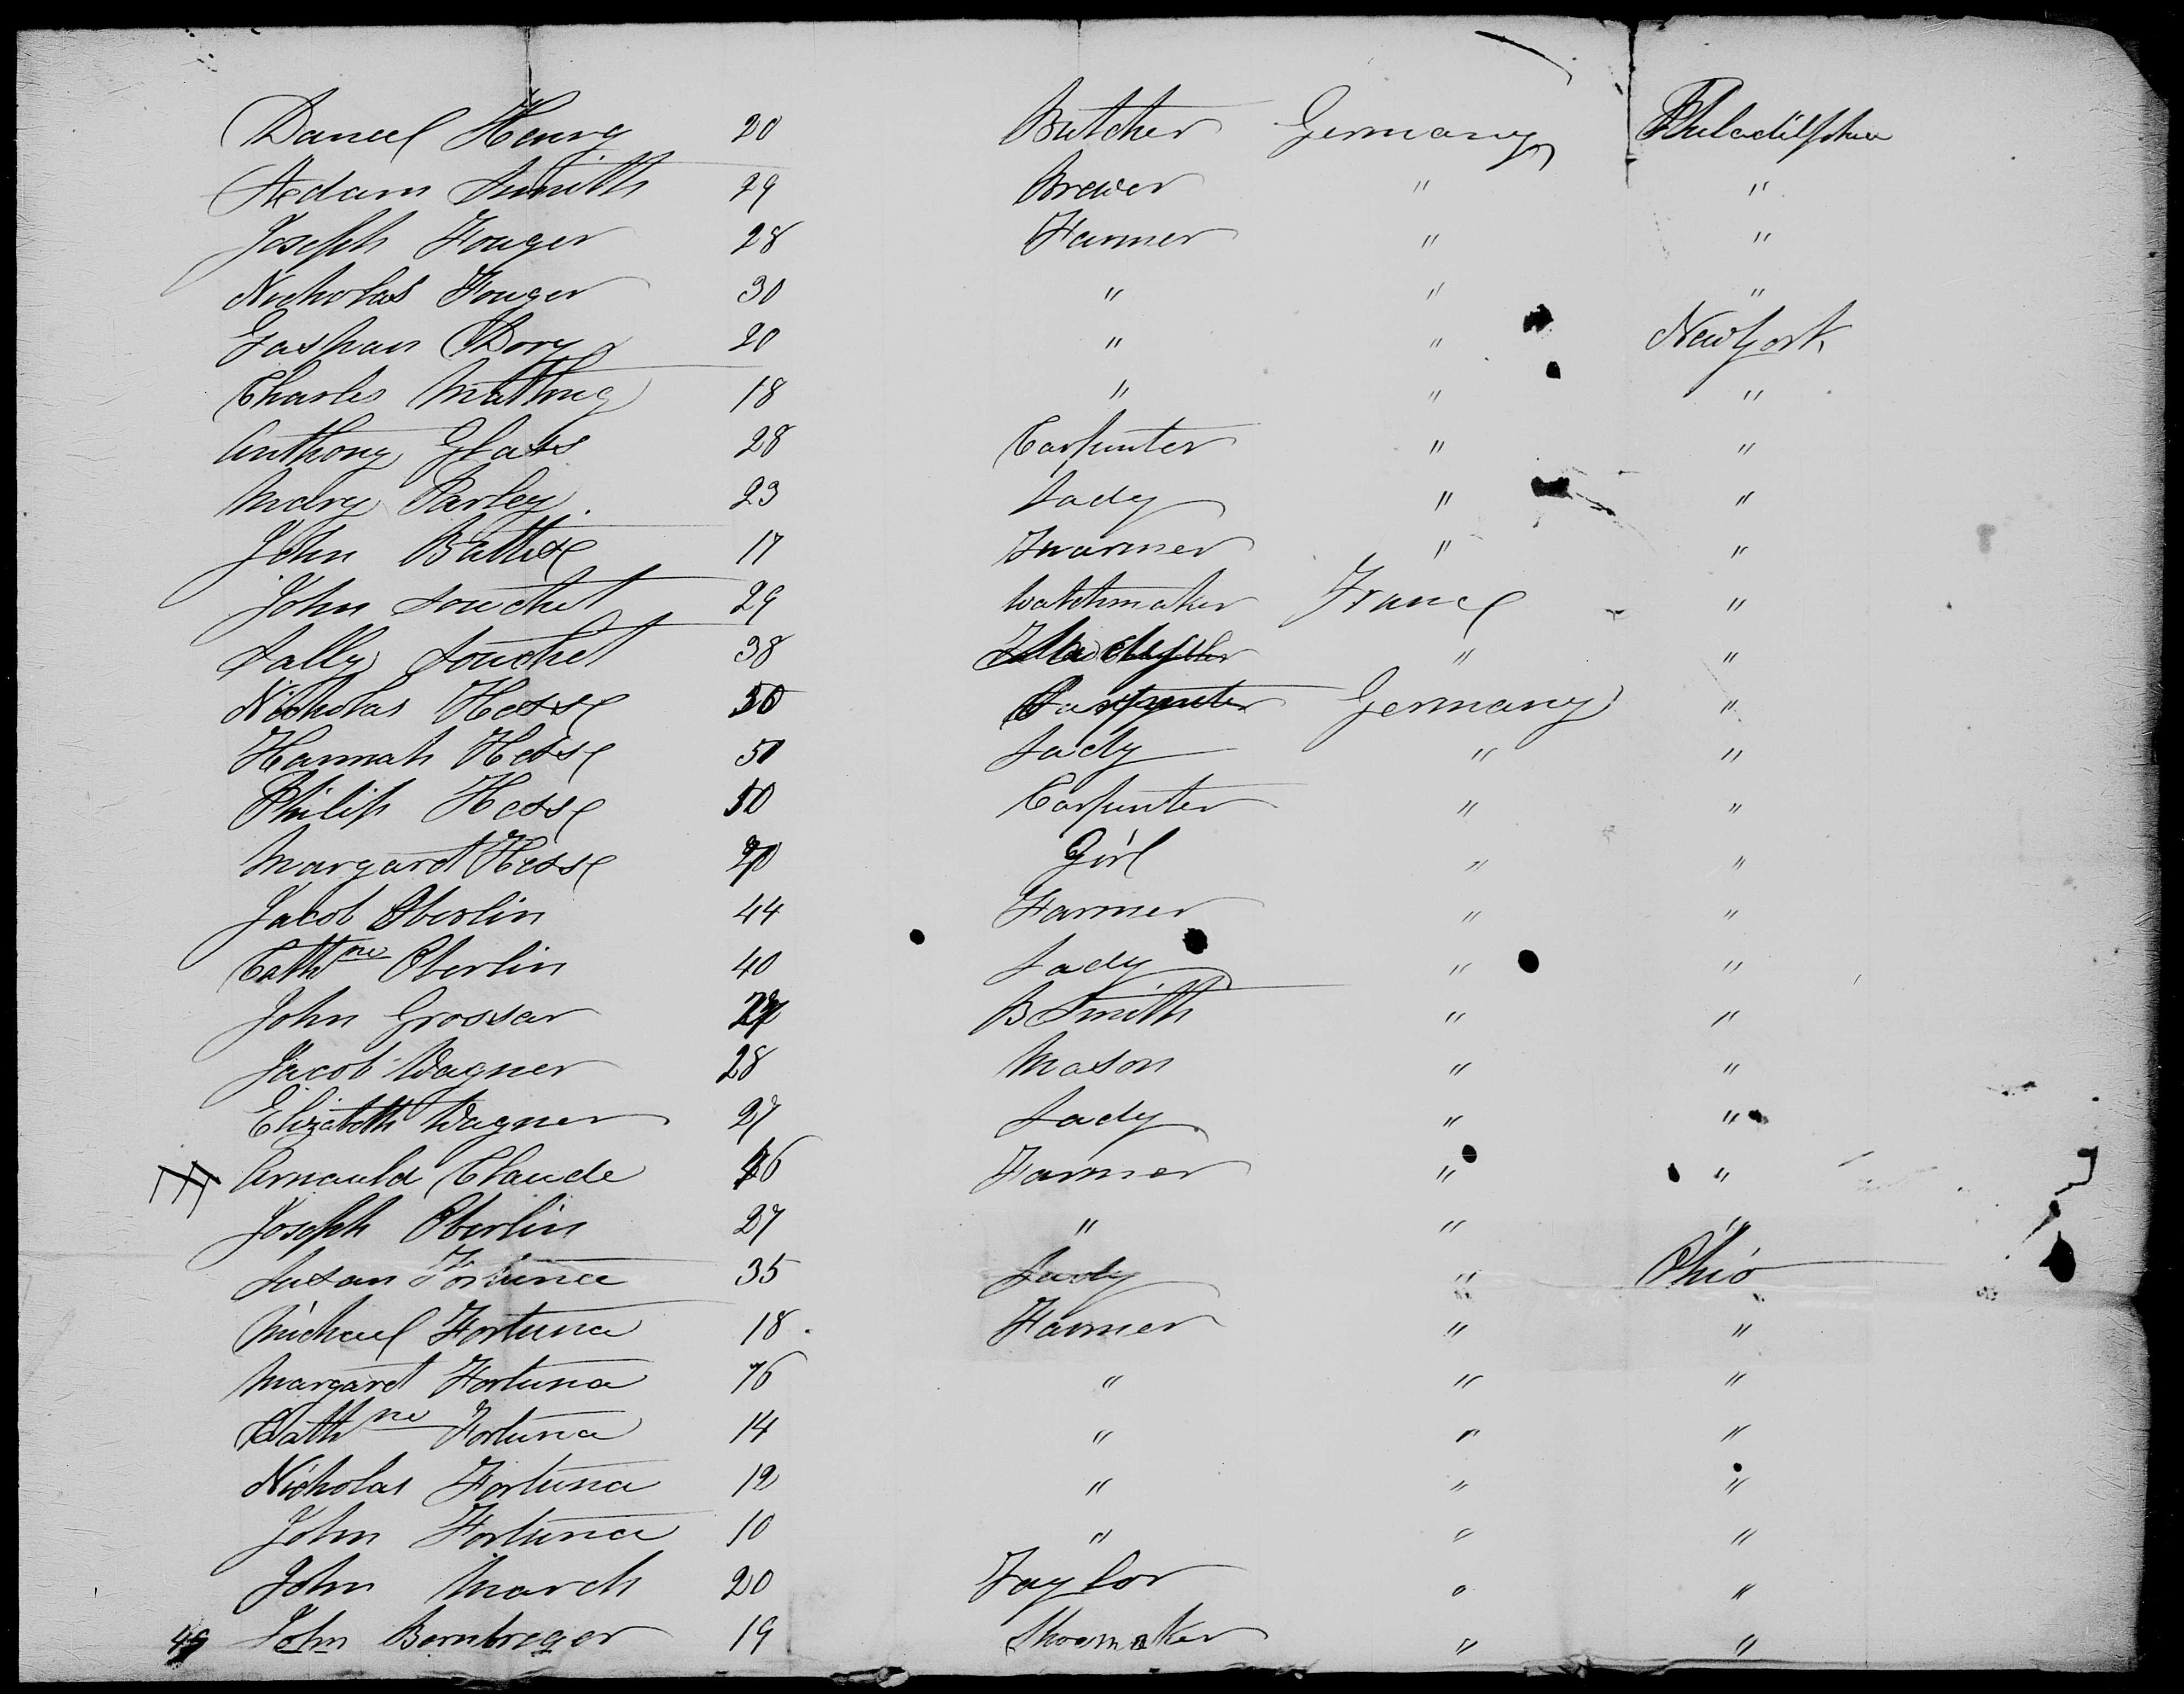 Daniel Henry 20 Butcher Germany Philadelphia
Adam Smith 29 Brewer " "
Joseph Fouger 28 Farmer " "
Nicholas Fouger 30 " " "
Gaspar Dory 20 " " New York
Charles 18 " " "
Anthony Glass 28 Carpenter " "
Mary Parley. 23 Lady " "
John 17 Farmer " "
John Souchet 29 Watchmaker France "
Sally Souchet 38 Lady " "
Nicholas Hesse 50 Carpenter Germany "
Hannah Hesse 50 Lady " "
Philip Hesse 50 Carpenter " "
Margaret Hesse 20 Girl " "
Jacob Oberlin 44 Farmer " "
Cathne Oberlin 40 Lady " "
John Grossar B Smith " "
Jacob Wagner 28 Mason " "
Elizabeth Wagner 27 Lady " "
Arnauld Claude Farmer " "
Joseph Oberlin 27 " " "
Susan Fortuna 35 Lady " Ohio
Michael Fortuna 18. Farmer " "
Margaret Fortuna 16 " " "
Cathne Fortuna 14 " " "
Nicholas Fortuna 12 " " "
John Fortuna 10 " " "
John March 20 Taylor " "
49 John Bernbreger 19 Shoemaker " "